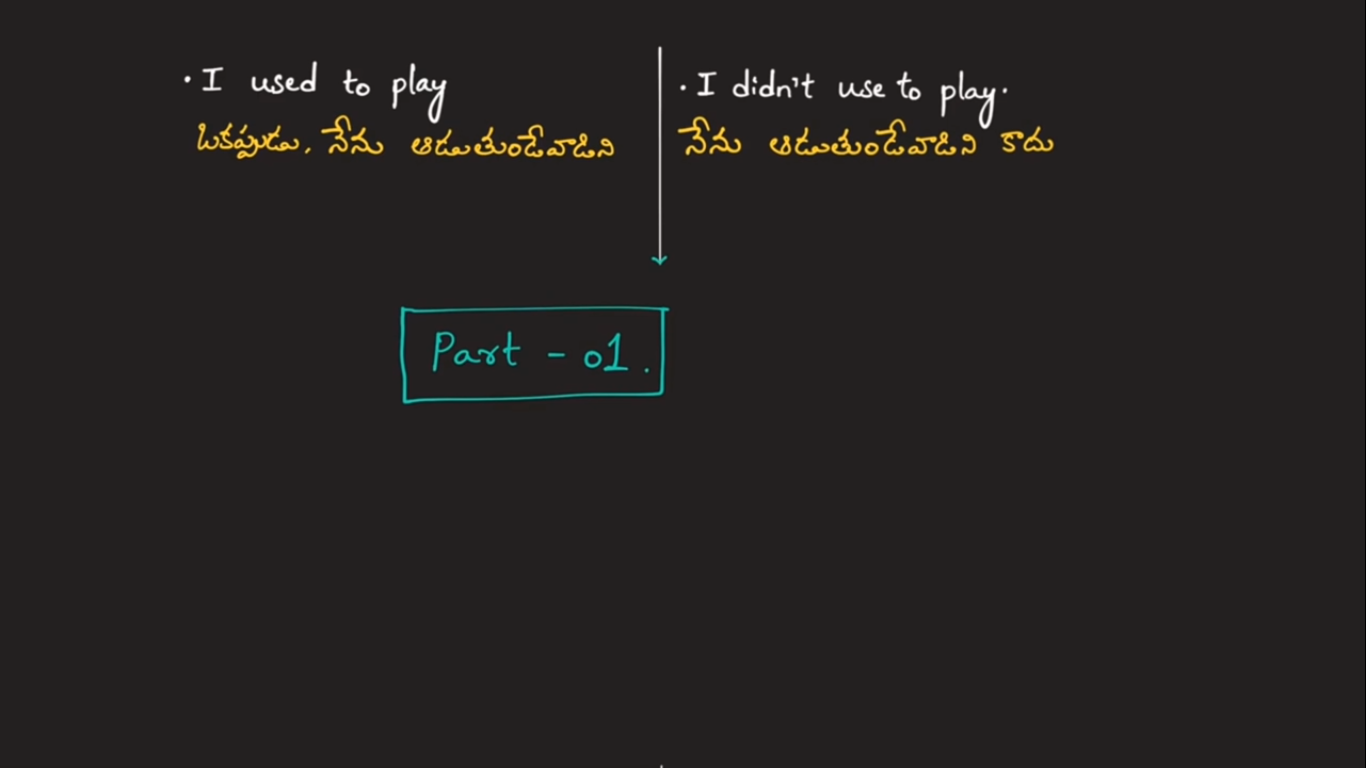 · I used to play
ఒకప్పుడు, నేను ఆడుతుండేవాడిని
· I didn't use to play.
నేను ఆడుతుండేవాడిని కాదు
Part - 01.